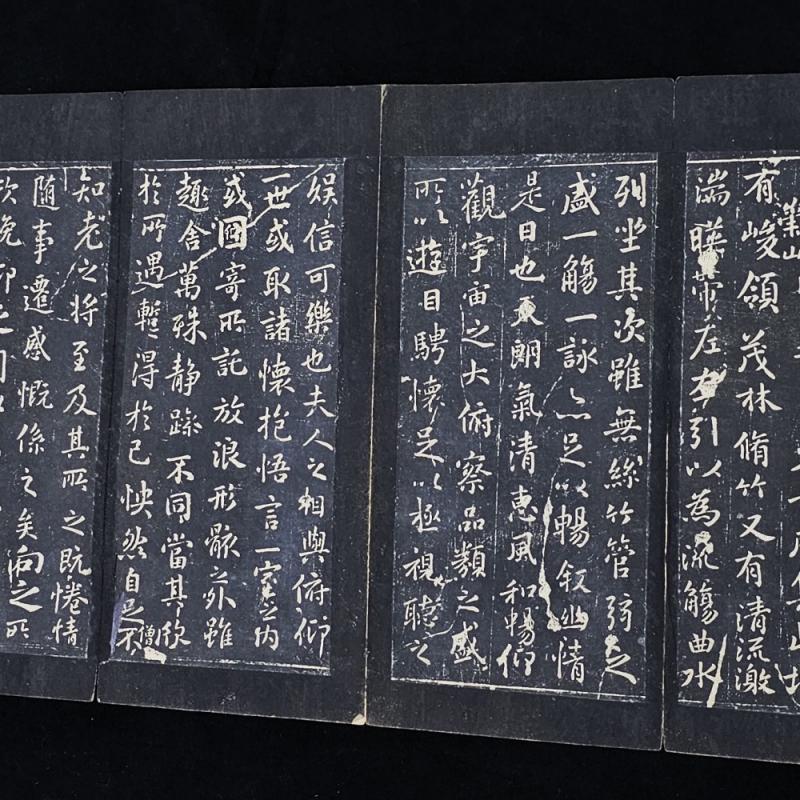 崇山
有峻領茂林脩竹又有清流激
湍暎帶左右引以為流觴曲水
列坐其次雖無絲竹管弦之
盛一觴一詠亦足以暢敘幽情
是日也天朗氣清惠風和暢仰
觀宇宙之大俯察品類之盛
所以遊目騁懷足以極視聽之
娛信可樂也夫人之相與俯仰
一世或取諸懷抱悟言一室之內
或因寄所託放浪形骸之外雖
趣舍萬殊静躁不同當其欣
於所遇暫得於己怏然自足不
僧
知老之將至及其所之既惓情
随事遷感慨係之矣向之所
欣俛仰之間